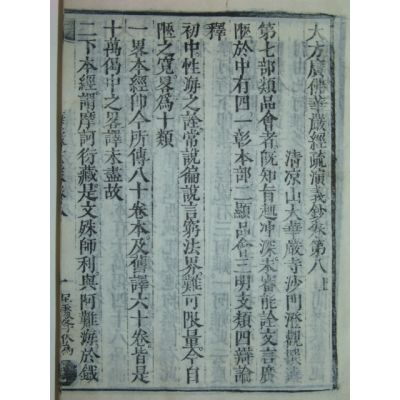 大方廣佛華嚴經疏演義鈔卷第八上
清凉山大華嚴寺沙門澄觀撰述
第七部類品會者既知有趣冲深未審能詮文言廣
陿於中有四一彰本部二顯品會三明支類四辯論
釋
初中性海之詮常說徧說言窮法界難可限量今自
陿之寬畧為十類
一畧本經即今所傳八十卷本及舊譯六十卷皆是
十萬偈中之畧譯未盡故
二下本經謂摩訶衍藏是文殊師利與阿難海於鐵